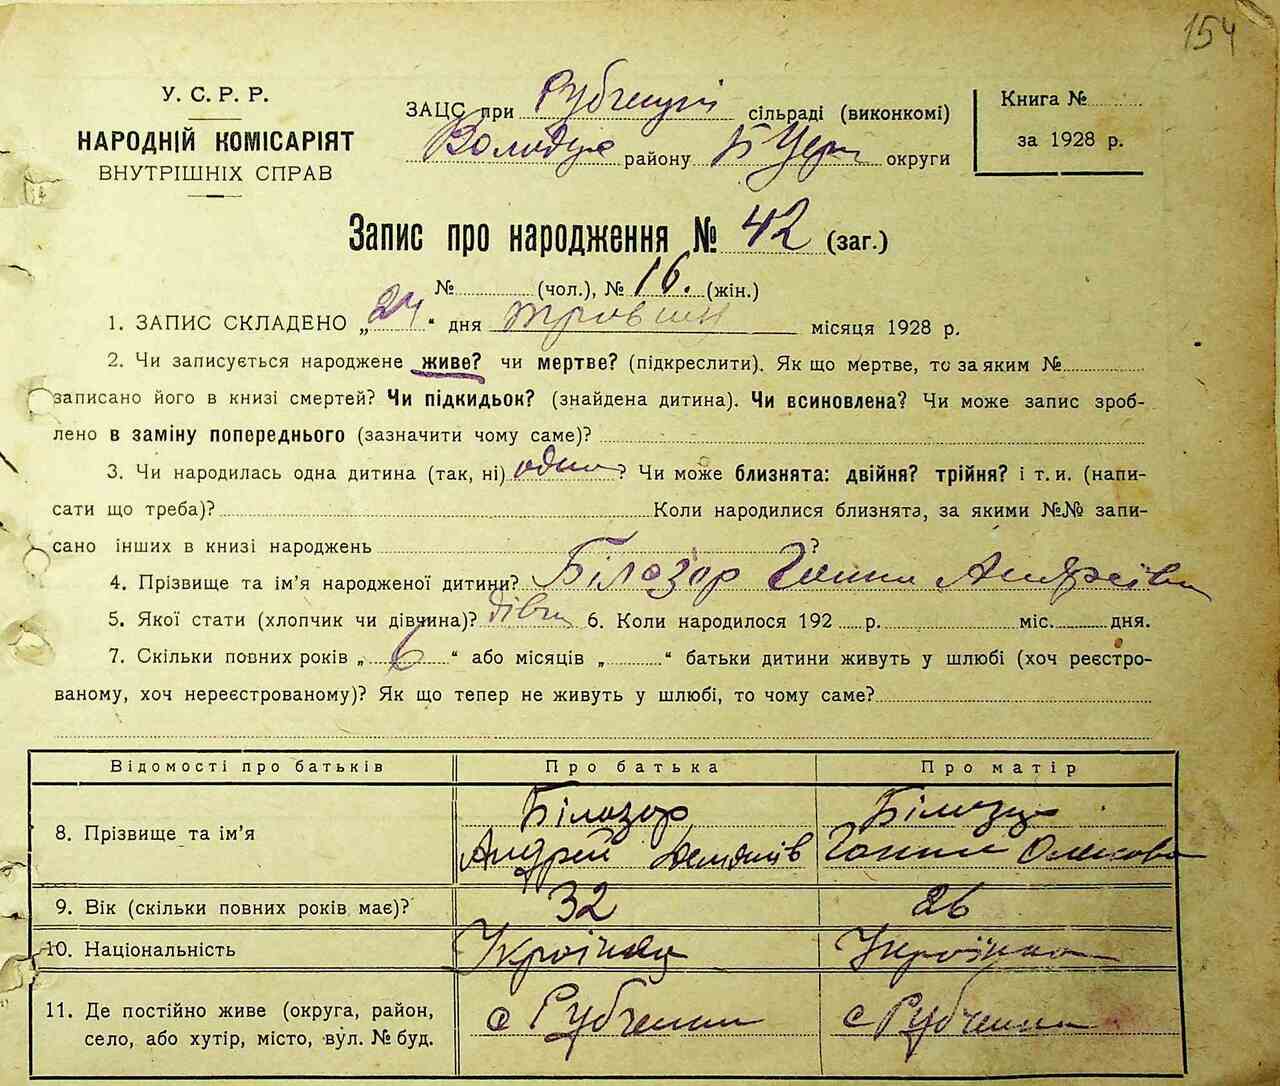 154
У. С. Р. Р.
НАРОДНІЙ КОМІСАРІЯТ
ВНУТРІШНІХ СПРАВ
ЗАЦС при Рубченцкі сільраді (виконкомі)
Володар району Б Церк округи
Книга №
за 1928 р.
Запис про народження № 42 (заг.)
№ (чол.), № 16. (жін.)
1. ЗАПИС СКЛАДЕНО „24“ дня місяця 1928 р.
2. Чи записується народжене живе? чи мертве? (підкреслити). Як що мертве, то за яким №
записано його в книзі смертей? Чи підкидьок? (знайдена дитина). Чи всиновлена? Чи може запис зроб-
лено в заміну попереднього (зазначити чому саме)?
3. Чи народилась одна дитина (так, ні) одна? Чи може близнята: двійня? трійня? і т. и. (напи-
сати що треба)? Коли народилися близнята, за якими №№ запи-
сано інших в книзі народжень ?
4. Прізвище та ім’я народженої дитини? Білозор Ганна Андреівна
5. Якої стати (хлопчик чи дівчина)? дівч 6. Коли народилося 192 р. міс. дня.
7. Скільки повних років „6“ або місяців „ “ батьки дитини живуть у шлюбі (хоч реєстро-
ваному, хоч нереєстрованому)? Як що тепер не живуть у шлюбі, то чому саме?
Відомості про батьків Про батька Про матір
8. Прізвище та ім’я Білозор Андрей Демянів Білозор Ганна
9. Вік (скільки повних років має)? 32 26
10. Національність Українец Українка
11. Де постійно живе (округа, район,
село, або хутір, місто, вул. № буд. с Рубченки с Рубченки